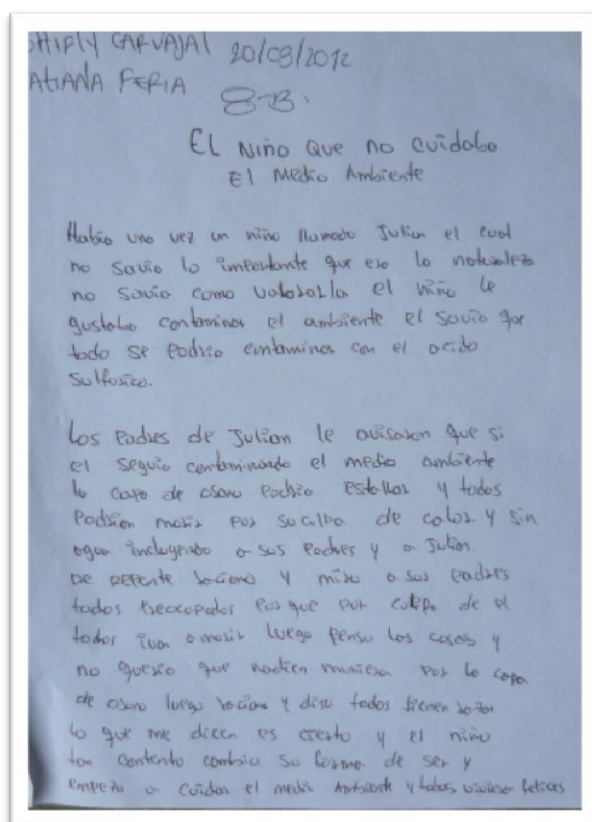 SHIRLY CARVAJAL 20/08/2012
TATIANA FERIA
8-B.
El Niño Que no cuidaba
El Medio Ambiente
Habia una vez un niño llamado Julian el cual
no savia lo importante que era la naturaleza
no savia como valorarla el niño le
gustaba contaminar el ambiente el savia que
todo se podria contaminar con el acido
Sulfurico.
Los Padres de Julian le avisaron que si
el seguia contaminando el medio ambiente
la capa de osono Podria estallar y todos
Podrian morir por su culpa de calor y sin
agua incluyendo a sus Padres y a Julian.
De repente sociono y miro a sus padres
todos preocupados Porque por culpa de el
todos ivan a morir luego penso las cosas y
no queria que nadien muriera por la capa
de osono luego sociono y dijo todos tienen razon
lo que me dicen es cierto y el niño
tan contento cambio su forma de ser y
empezo a cuidar el medio Ambiente y todos vivieron felices